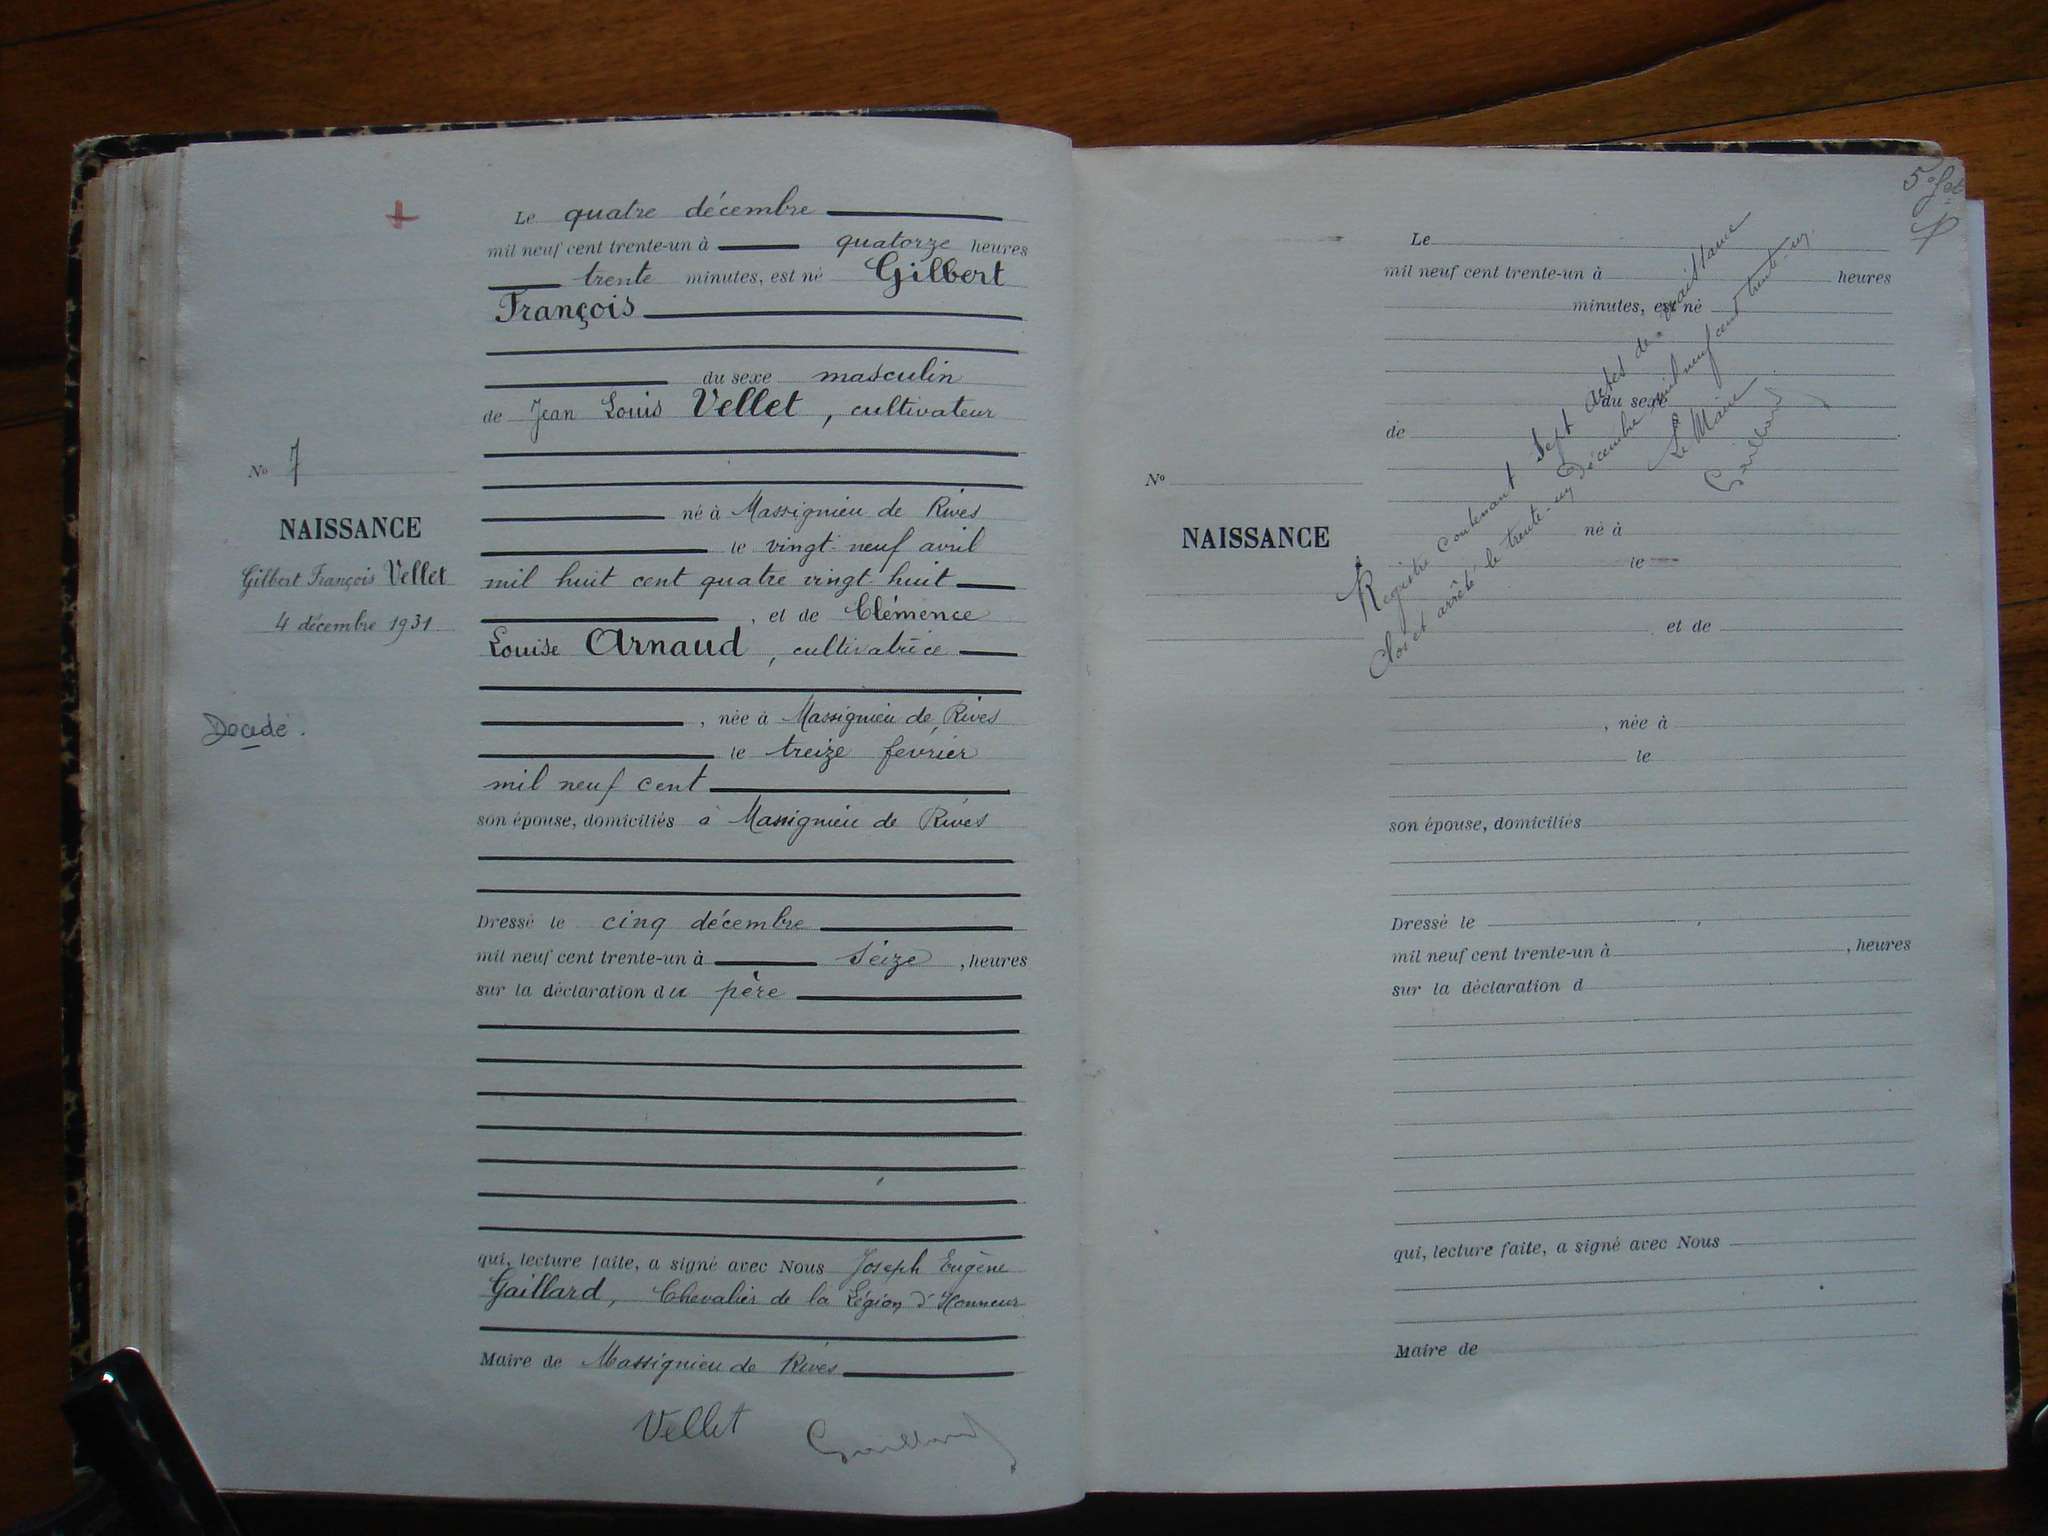 Le quatre décembre
mil neuf cent trente-un à quatorze heures
trente minutes, est né Gilbert
François
du sexe masculin
de Jean Louis Vellet, cultivateur
né à Massignieu de Rives
le vingt-neuf avril
mil huit cent quatre vingt huit
, et de Clémence
Louise Arnaud, cultivatrice
, née à Massignieu de Rives
le treize février
mil neuf cent
son épouse, domiciliés à Massignieu de Rives
Dressé le cinq décembre
mil neuf cent trente-un à seize, heures
sur la déclaration du père
qui, lecture faite, a signé avec Nous Joseph Eugène
Gaillard, Chevalier de la Légion d'Honneur
Maire de Massignieu de Rives
Vellet Gaillard
No 7
NAISSANCE
Gilbert François Vellet
4 décembre 1931
Décédé.
Le
mil neuf cent trente-un à heures
minutes, est né
du sexe
de
né à
le
et de
, née à
le
son épouse, domiciliés
Dressé le
mil neuf cent trente-un à , heures
sur la déclaration d
qui, lecture faite, a signé avec Nous
Maire de
No
NAISSANCE
Registre contenant sept actes de naissance
Clos et arrêté le trente-un Décembre mil neuf cent trente-un.
Le Maire
Gaillard